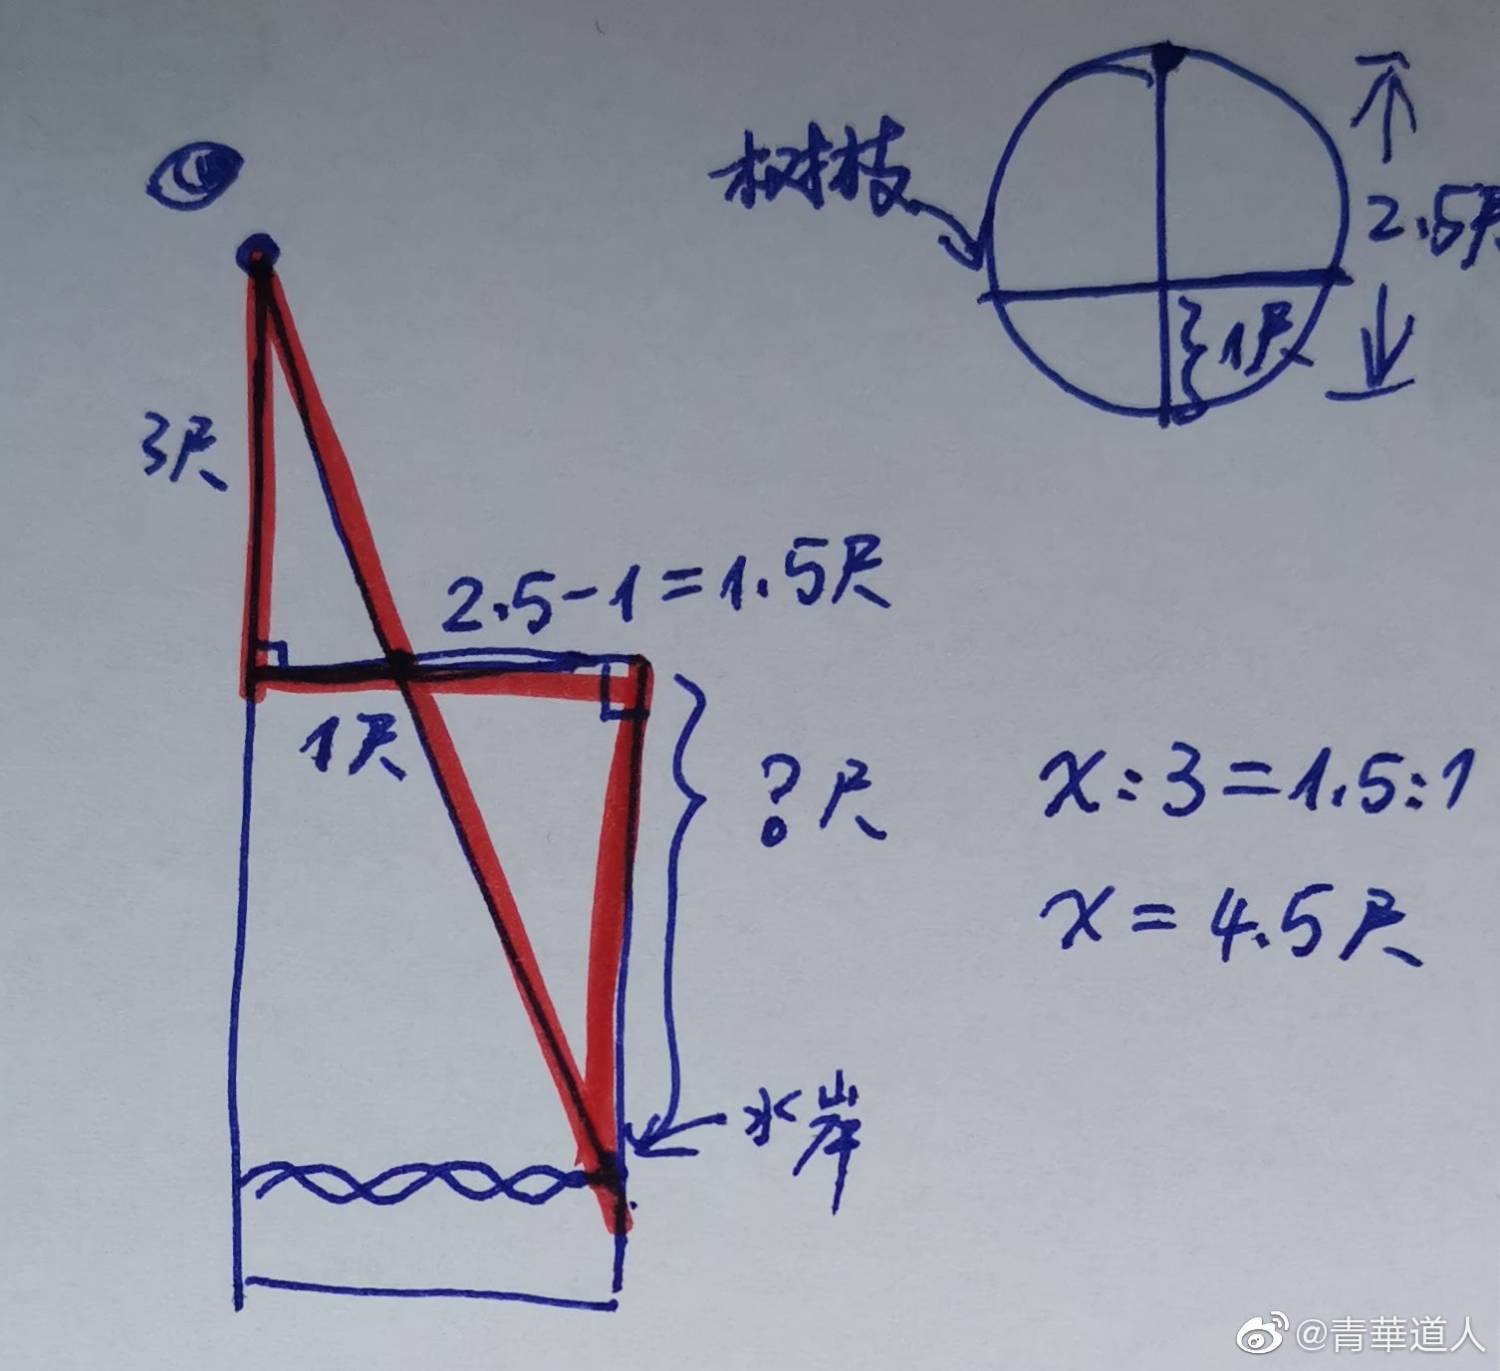 树枝
2.5尺
1尺
3尺
2.5-1=1.5尺
1尺
?尺
x:3=1.5:1
x=4.5尺
水岸
@青華道人